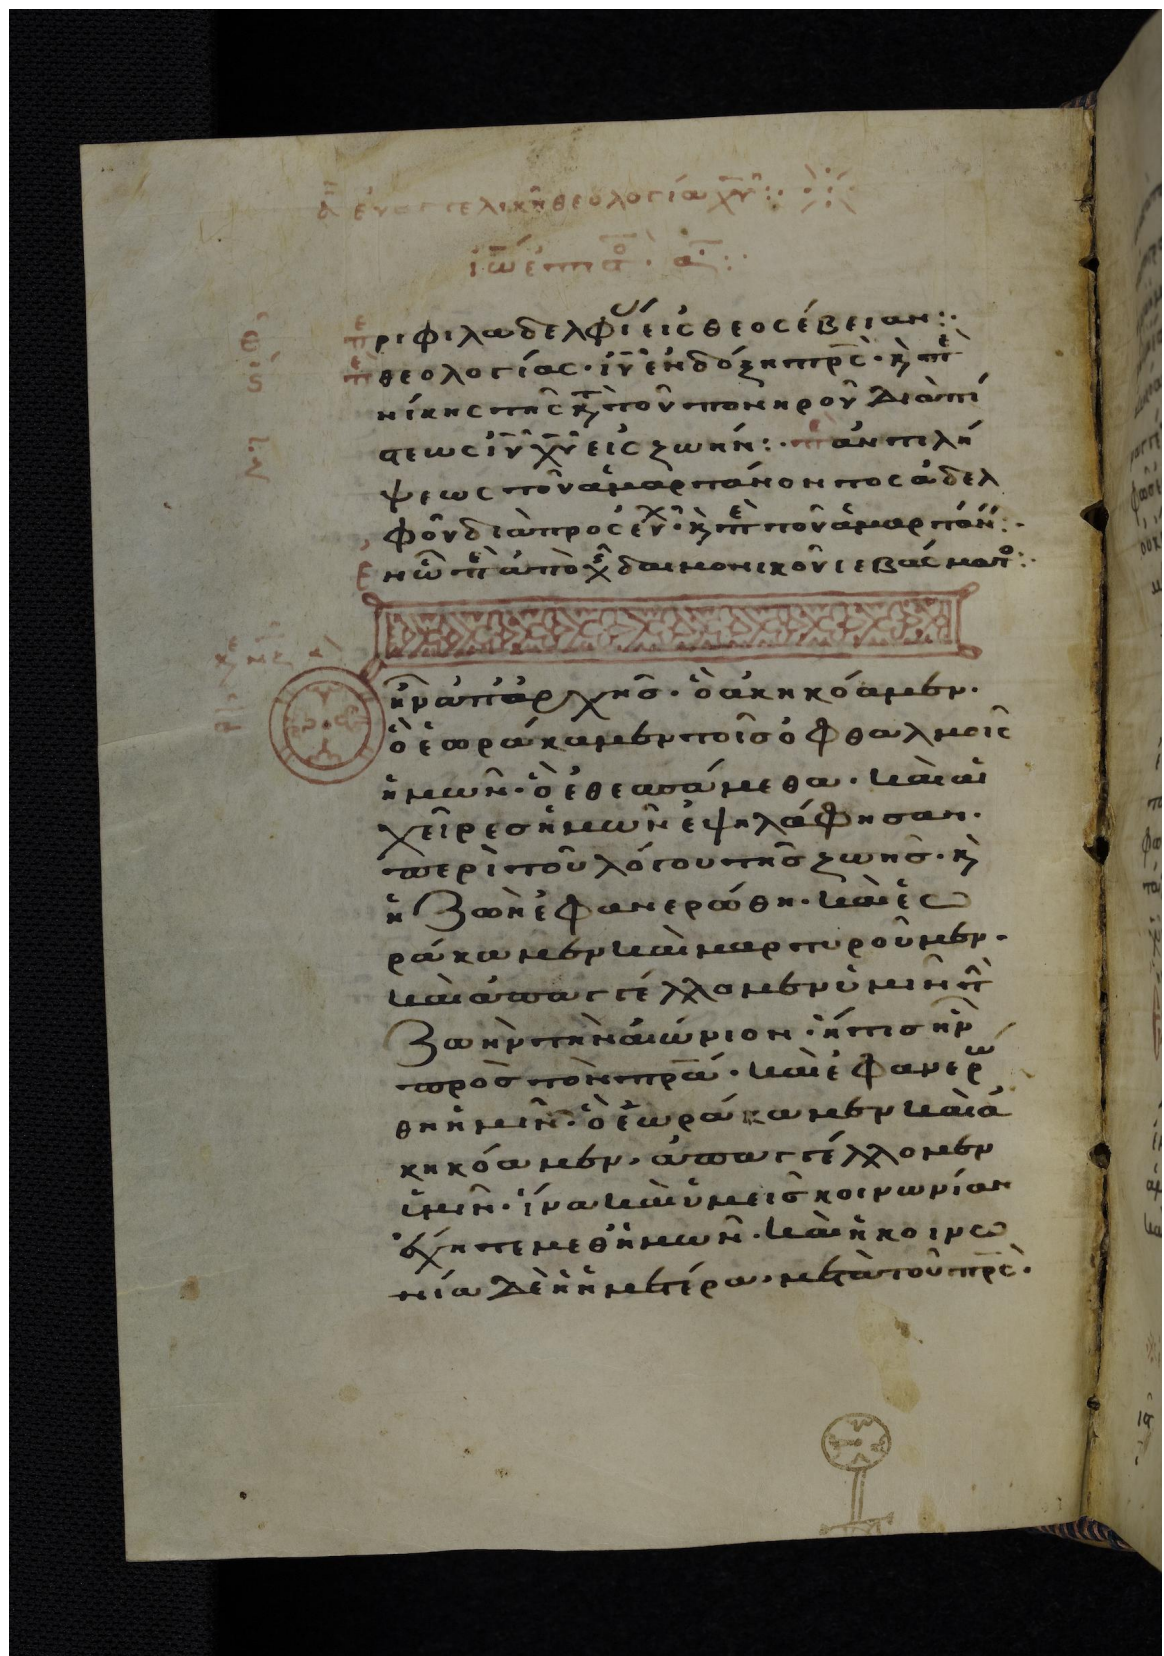 ᾱ εὐαγγελικὴ θεολογία χ̅υ̅:·
ἰω̅ ἐπιστο̅ · α̅:·
ε περι φιλαδελφίας εἰς θεοσέβειαν:·
ς περὶ θεολογίας · ι̅υ̅ ἐν δόξη π̅ρ̅ς̅ · κ̀ περὶ
νίκης τῆς κατὰ τοῦ πονηροῦ διὰ πί
στεως ι̅υ̅ χ̅υ̅ εἰς ζωήν:· περὶ ἀντιλή
ζ
ψεως τοῦ ἁμαρτάνοντος ἀδελ
φοῦ διὰ προσευχ · κ̀ περὶ τοῦ ἁμαρτάν:·
ἐν ὧ περὶ ἀποχ δαιμονικοῦ σεβάσματο:·
Ὃ ἦν ἀπ ἀρχῆσ · ὃ ἀκηκόαμεν ·
ὃ ἑωράκαμεν τοῖσ ὀφθαλμοῖς
ἡμῶν · ὃ ἐθεασάμεθα · καὶ αἱ
χεῖρεσ ἡμῶν ἐψηλάφησαν ·
περὶ τοῦ λόγου τῆσ ζωῆσ · κ̀
ἡ ζωὴ ἐφανερώθη · καὶ ἑω
ράκαμεν καὶ μαρτυροῦμεν ·
καὶ ἀπαγγέλλομεν ὑμῖν τὴ
ζωὴν τὴν αἰώνιον · ἥτισ ἦν
πρὸσ τὸν π̅ρ̅α̅ · καὶ ἐφανερώ
θη ἡμῖν · ὃ ἑωράκαμεν καὶ ἀ
κηκόαμεν · ἀπαγγέλλομεν
ὑμῖν · ἵνα καὶ ὑμεῖσ κοινωνίαν
ἔχητε μεθ ἡμῶν · καὶ ἡ κοινω
νία δὲ ἡ ἡμετέρα · μετὰ τοῦ π̅ρ̅ς̅ ·